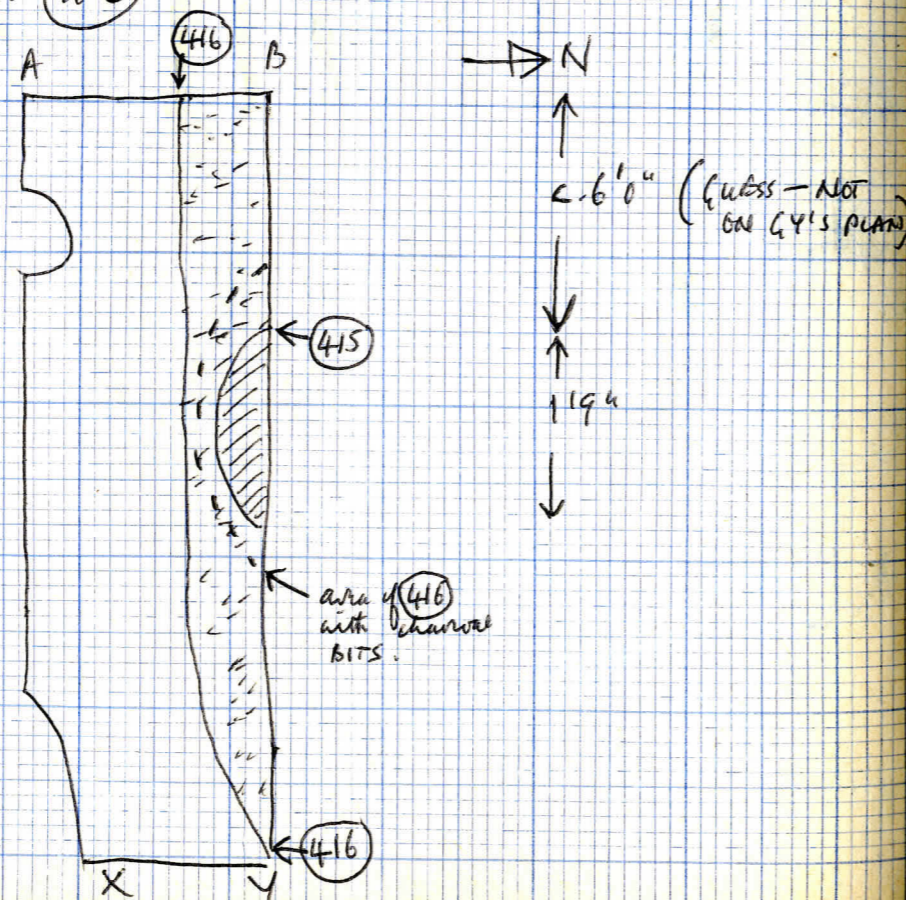 416
A
B
N
6'0" (GUESS — NOT
ON GY'S PLAN)
415
1'9"
area of 416
with charcoal
BITS.
416
X
Y